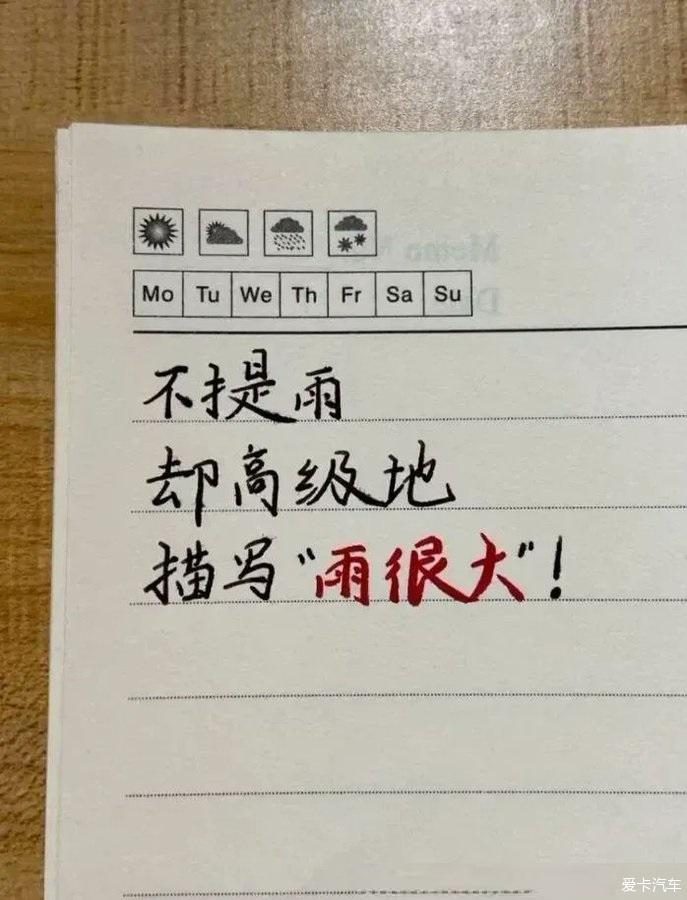 Mo Tu We Th Fr Sa Su
不提雨
却高级地
描写“雨很大”！
爱卡汽车